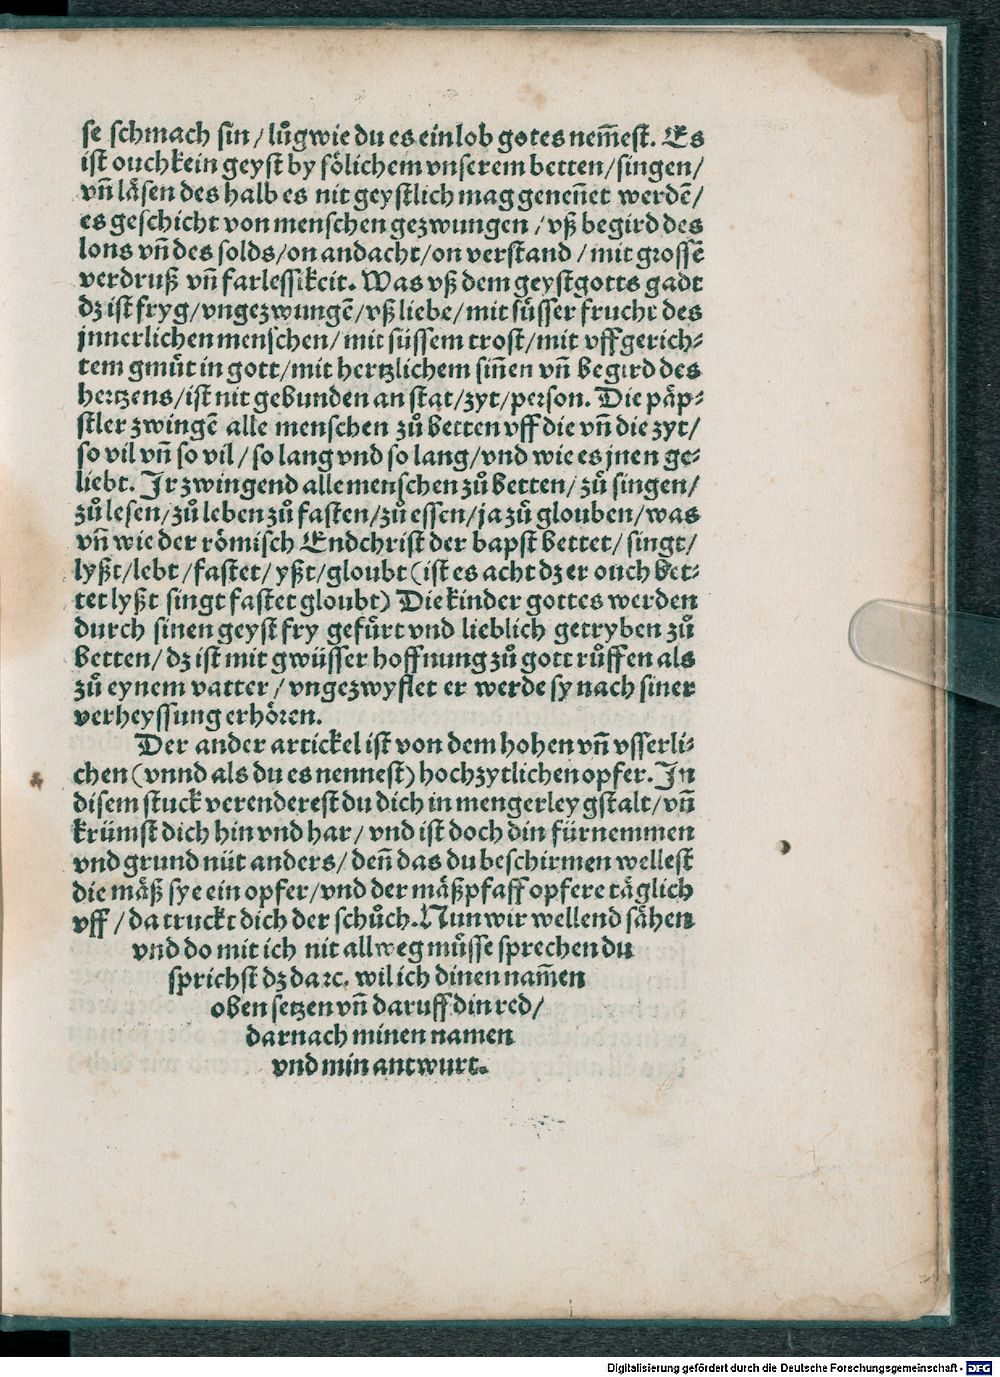 se schmach sin / luͦg wie du es ein lob gotes nem̄est. Es
ist ouch kein geyst by soͤlichem vnserem betten / singen /
vn̄ laͤsen des halb es nit geystlich mag genen̄et werdē /
es geschicht von menschen gezwungen / vß begird des
lons vn̄ des solds / on andacht / on verstand / mit grossē
verdruß vn̄ farlessikeit. Was vß dem geyst gotts gadt
dz ist fryg / vngezwungē / vß liebe / mit suͤsser frucht des
jnnerlichen menschen / mit süssem trost / mit vffgerich⸗
tem gmuͤt in gott / mit hertzlichem sin̄en vn̄ begird des
hertzens / ist nit gebunden an stat / zyt / person. Die paͤp⸗
stler zwingē alle menschen zuͦ betten vff die vn̄ die zyt /
so vil vn̄ so vil / so lang vnd so lang / vnd wie es jnen ge⸗
liebt. Ir zwingend alle menschen zuͦ betten / zuͦ singen /
zuͦ lesen / zuͦ leben zuͦ fasten / zuͦ essen / ja zuͦ glouben / was
vn̄ wie der roͤmisch Endchrist der bapst bettet / singt /
lyßt / lebt / fastet / yßt / gloubt (ist es acht dz er ouch bet⸗
tet lyßt singt fastet gloubt) Die kinder gottes werden
durch sinen geyst fry gefuͤrt vnd lieblich getryben zuͦ
betten / dz ist mit gwüsser hoffnung zuͦ gott ruͤffen als
zuͦ eynem vatter / vngezwyflet er werde sy nach siner
verheyssung erhoͤren.
Der ander artickel ist von dem hohen vn̄ vsserli⸗
chen (vnnd als du es nennest) hochzytlichen opfer. In
disem stuck verenderest du dich in mengerley gstalt / vn̄
krümst dich hin vnd har / vnd ist doch din fürnemmen
vnd grund nüt anders / den̄ das du beschirmen wellest
die maͤß sye ein opfer / vnd der maͤßpfaff opfere taͤglich
vff / da truckt dich der schuͦch. Nun wir wellend saͤhen
vnd do mit ich nit allweg muͤsse sprechen du
sprichst dz da ꝛc. wil ich dinen nam̄en
oben setzen vn̄ daruff din red /
darnach minen namen
vnd min antwurt.
Digitalisierung gefördert durch die Deutsche Forschungsgemeinschaft - DFG